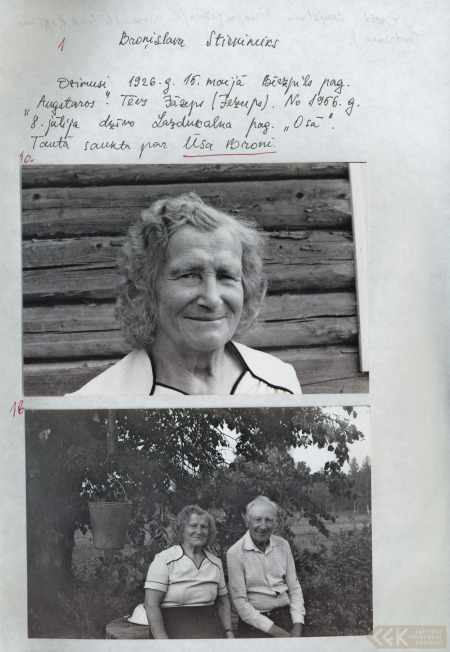 1 Broņislava Stieviniks
Dzimusi 1926. g. 15. maijā Bērzpils pag.
„Augstaros”. Tēvs Jāzeps (Jezups). No 1956. g.
8. jūlija dzīvo Lazdukalna pag. „Osā”.
Tautā saukta par Ūsa Broni.
1a.
1b
LATVIEŠU
FOLKLORAS
KRĀTUVE